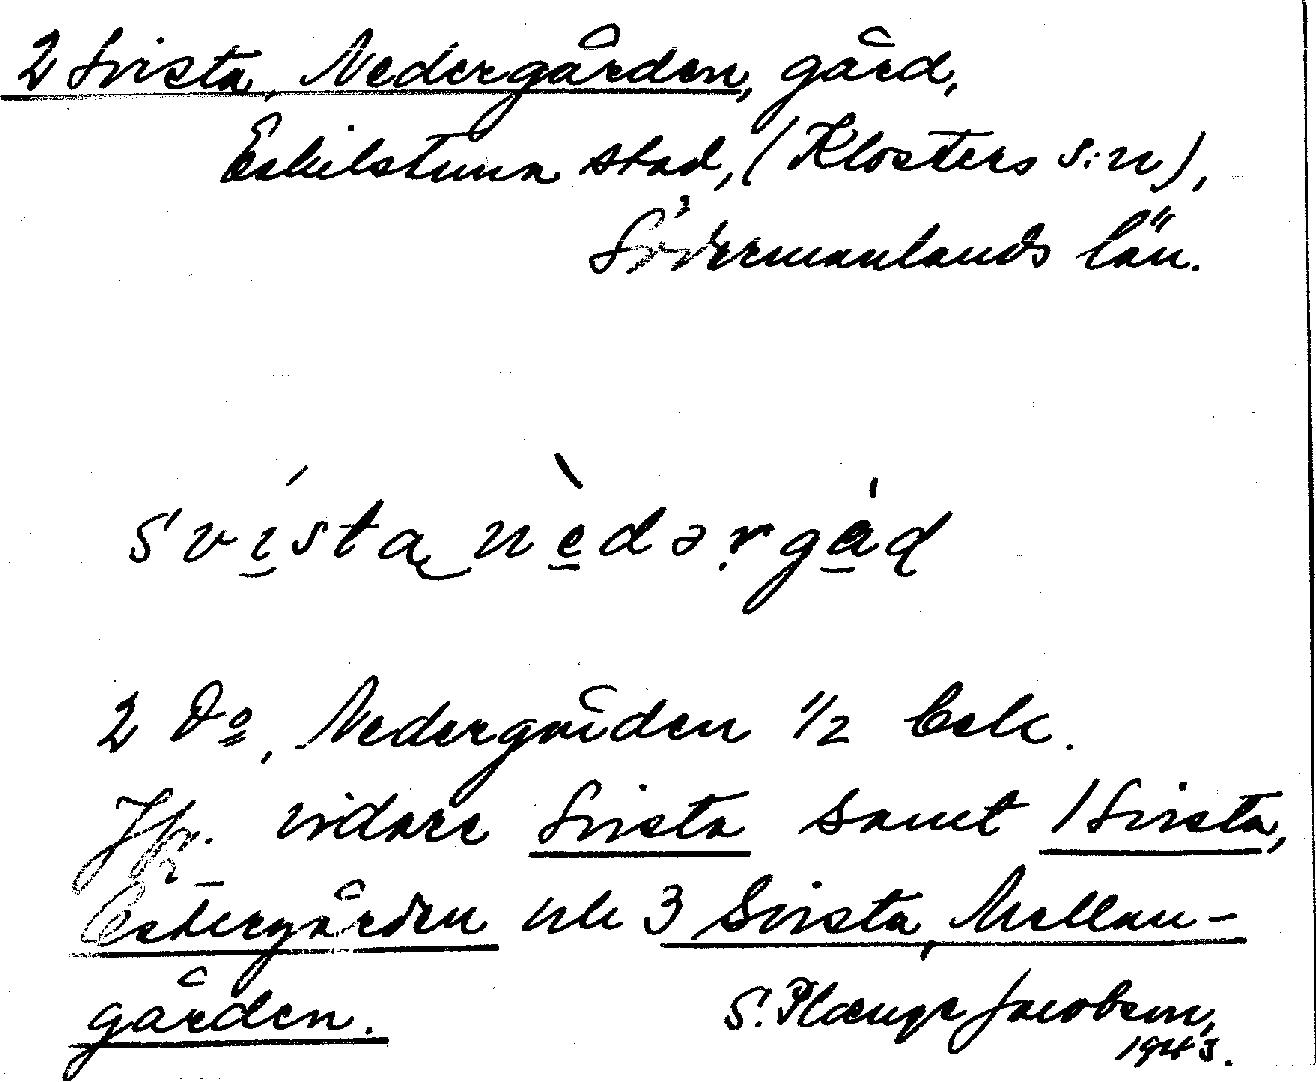 2 Svista, Nedergården, gård,
Eskilstuna stad, (Klosters s:n),
Södermanlands län.
svísta nèdərgåd
2 Do, Nedergården 1/2 Esk.
Jfr. vidare Svista samt 1 Svista,
Östergården och 3 Svista, Mellan-
gården.
S. Plænge Jacobson,
1943.